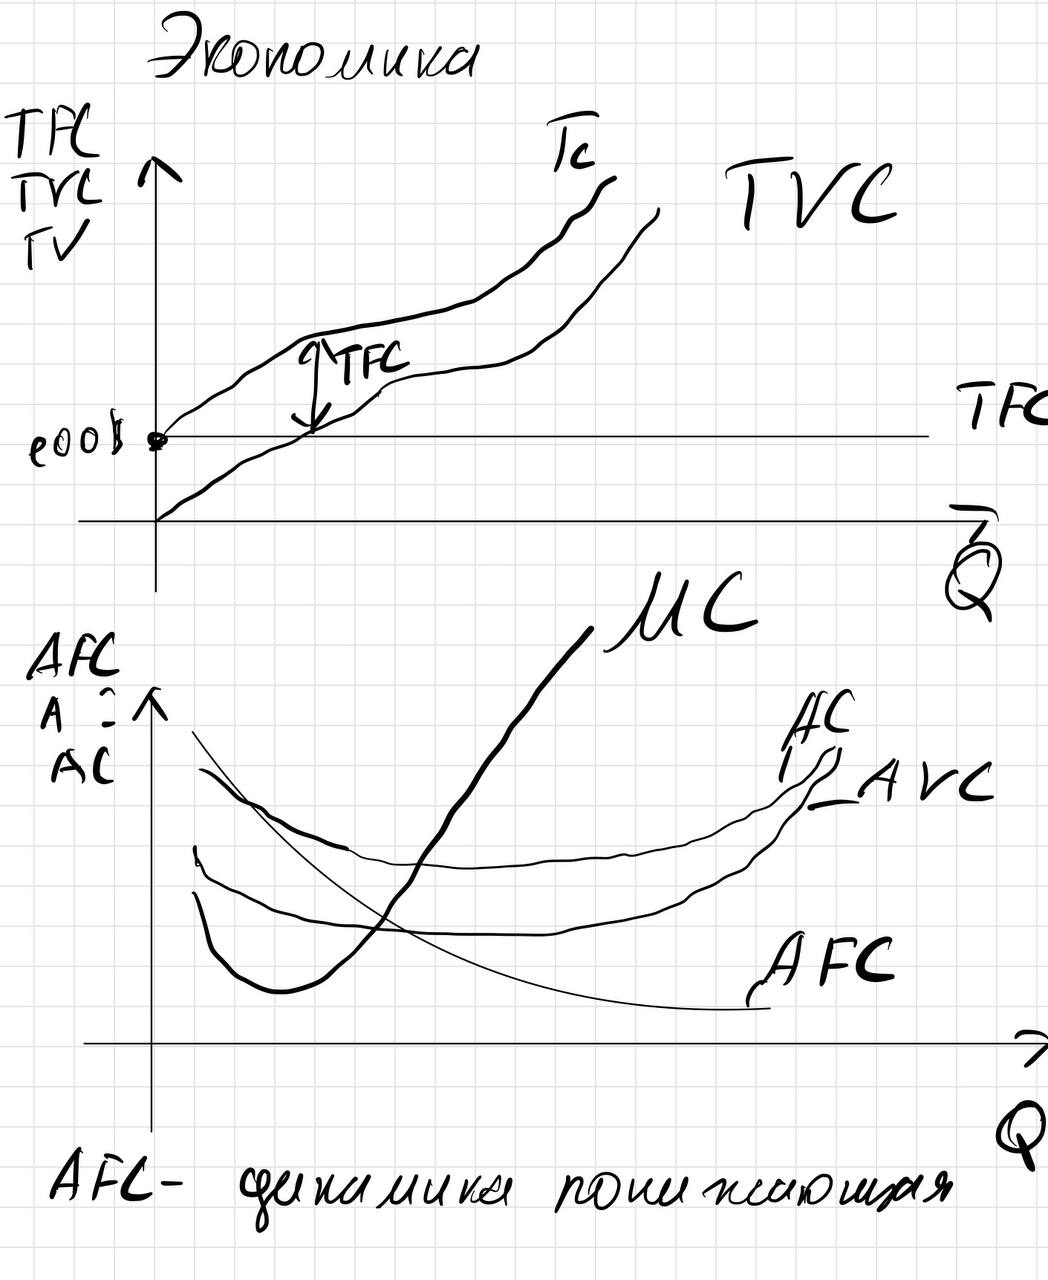 Экономика
TFC
TVC
TV
Tc
TVC
TFC
TFC
Q
MC
AFC
A
AC
AC
AVC
AFC
Q
AFC- динамика понижающая